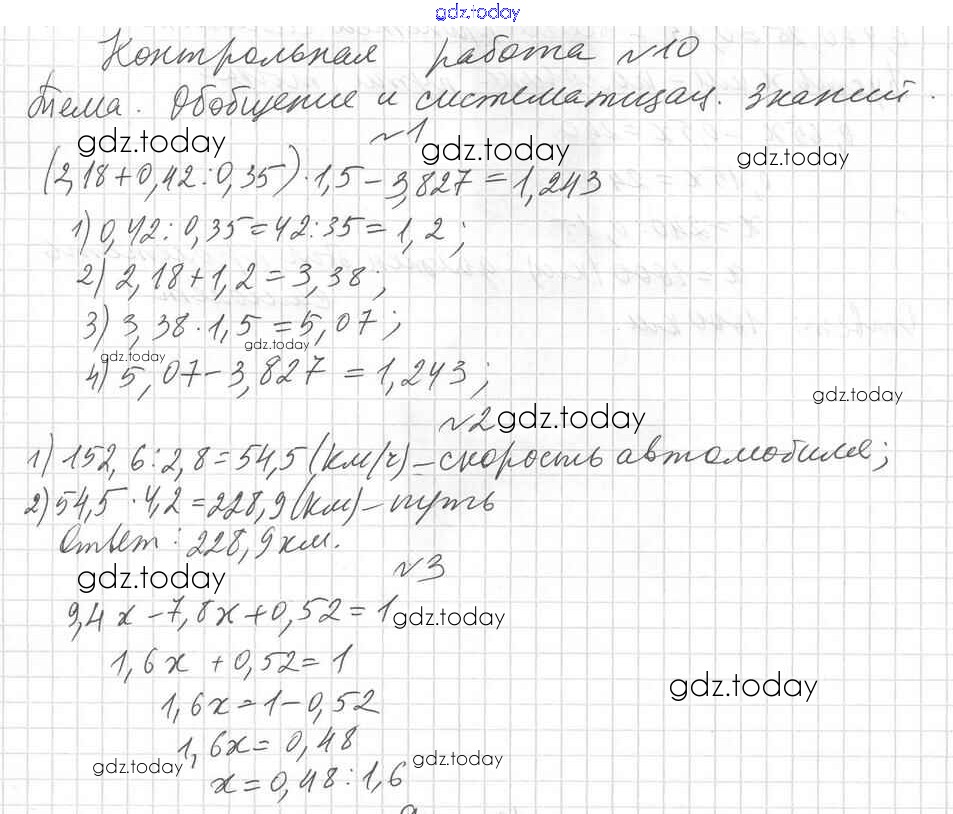 gdz.today
Контрольная работа №10
Тема. Обобщение и систематизац. знаний.
gdz.today
№1
gdz.today
gdz.today
(2,18+0,42:0,35)·1,5-3,827=1,243
1) 0,42:0,35=42:35=1,2;
2) 2,18+1,2=3,38;
3) 3,38·1,5=5,07;
gdz.today
gdz.today
4) 5,07-3,827=1,243;
gdz.today
№2
gdz.today
1) 152,6:2,8=54,5 (км/ч) – скорость автомобиля;
2) 54,5·4,2=228,9 (км) – путь
Ответ: 228,9 км.
gdz.today
№3
9,4x-7,8x+0,52=1
gdz.today
1,6x+0,52=1
gdz.today
1,6x=1-0,52
1,6x=0,48
gdz.today
gdz.today
x=0,48:1,6